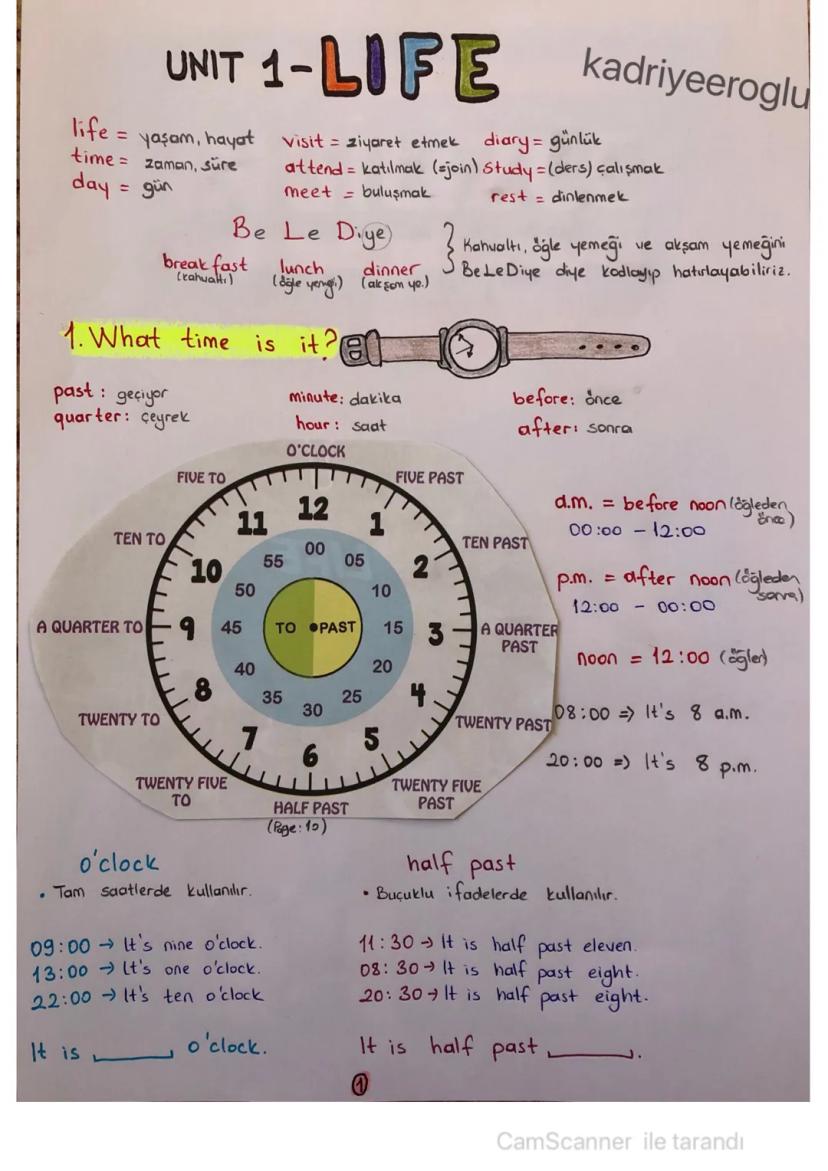 UNIT 1-LIFE
kadriyeeroglu
life = yaşam, hayat
visit = ziyaret etmek
diary = günlük
time = zaman, süre
attend = katılmak (=join)
study = (ders) çalışmak
day = gün
meet = buluşmak
rest = dinlenmek
Be Le Diye
breakfast lunch dinner
(kahvaltı) (öğle yemeği) (akşam ye.)
Kahvaltı, öğle yemeği ve akşam yemeğini
BeLeDiye diye kodlayıp hatırlayabiliriz.
1. What time is it?
past : geçiyor
minute: dakika
before: önce
quarter: çeyrek
hour: saat
after: sonra
O'CLOCK
FIVE TO
FIVE PAST
TEN TO
TEN PAST
A QUARTER TO
A QUARTER
PAST
TWENTY TO
TWENTY PAST
TWENTY FIVE
TO
TWENTY FIVE
PAST
HALF PAST
(Page: 10)
12
1
2
3
4
5
6
7
8
9
10
11
00
05
10
15
20
25
30
35
40
45
50
55
TO •PAST
a.m. = before noon (öğleden
önce)
00:00 - 12:00
p.m. = after noon (öğleden
sonra)
12:00 - 00:00
noon = 12:00 (öğlen)
08:00 => It's 8 a.m.
20:00 => It's 8 p.m.
o'clock
• Tam saatlerde kullanılır.
09:00 → It's nine o'clock.
13:00 → It's one o'clock.
22:00 → It's ten o'clock
It is ______ o'clock.
half past
• Buçuklu ifadelerde kullanılır.
11:30 → It is half past eleven.
08:30 → It is half past eight.
20:30 → It is half past eight.
It is half past ______.
1
CamScanner ile tarandı